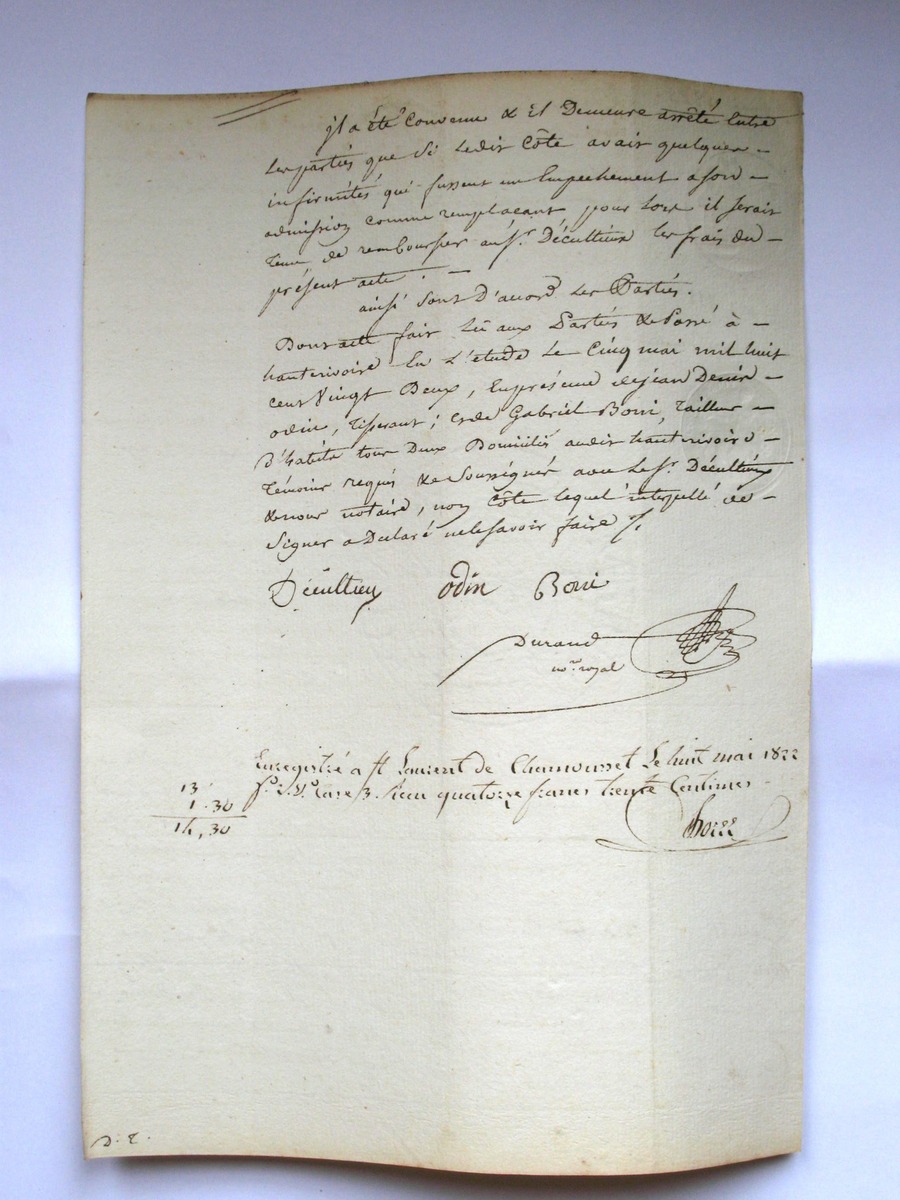 jl a été Convenu & Et Demeure arrêté Entre
Les parties que Si Ledit Côte avait quelques -
infirmités qui fussent un Empechement a son -
admission comme remplaçant pour lors il serait
tenu de rembourser au Sr. Décultieux les frais du -
présent acte . -
ainsi sont D'accord Les Parties.
Dont acte fait Lû aux Parties & Passé à -
hauterivoire En L'étude Le Cinq mai mil huit
cent Vingt Deux, En présence de jean Denis -
odin, tisserant ; et de Gabriel Boni, Tailleur -
D'habits tous Deux Domiciliés audit hauterivoire -
témoins requis & Soussignés avec Le Sr. Décultieux
& nous notaire, non Côte lequel interpellé de -
Signer a Déclaré ne le savoir faire
Décultieux odin Boni
Durand
nore. royal
Enregistré a St Laurent de Chamousset Le huit mai 1822
quatorze francs trente Centimes -
13
1.30
14,30
D. E.